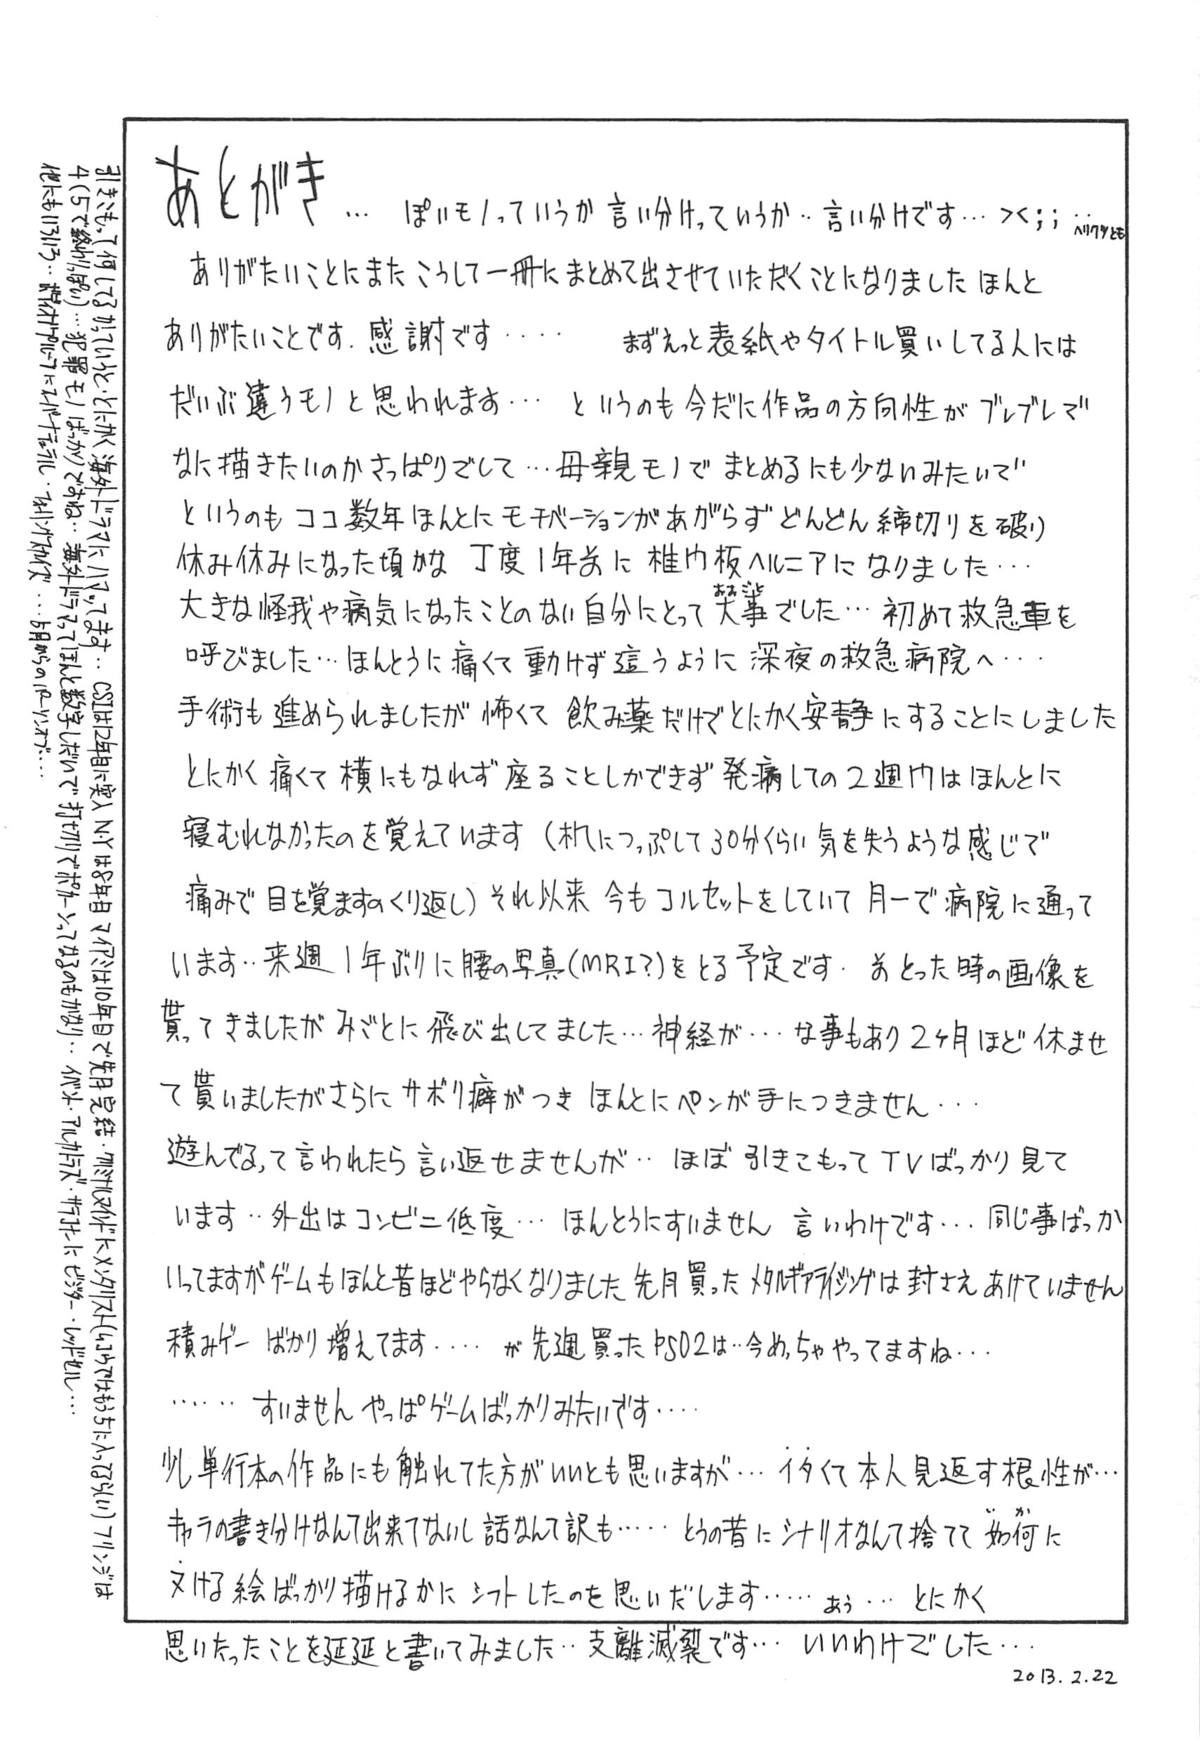 あとがき… ぽいモノっていうか 言い分けっていうか‥言い分けです… ><;;‥ヘリクツとも
ありがたいことにまた こうして一冊にまとめて出させていただくことになりました ほんと
ありがたいことです. 感謝です‥‥ まずえっと表紙やタイトル買いしてる人には
だいぶ違うモノと思われます… というのも今だに作品の方向性が ブレブレで
なに描きたいのかさっぱりでして…母親モノで まとめるにも少ないみたいで
というのも ココ数年ほんとに モチベーションがあがらず どんどん 締切りを破り
休み休みになった頃かな 丁度1年前に 椎ウ板ヘルニアに なりました…
大きな怪我や病気になったことのない自分にとって大事でした… 初めて救急車を
おおごと
呼びました…ほんとうに痛くて 動けず 這うように 深夜の救急病院へ…
手術も 進められましたが 怖くて 飲み薬だけでとにかく安静にすることにしました
とにかく 痛くて 横にもなれず 座ることしかできず 発病しての2週ウは ほんとに
寝むれなかったのを覚えています (机につっぷして30分くらい気を失うような感じで
痛みで 目を覚ますのくり返し) それ以来 今も コルセットをしていて 月一で 病院に 通って
います‥来週 1年ぶりに腰の写真(MRI?)をとる予定です. あ とった時の画像を
貰って きましたが みごとに 飛び出してました…神経が… な事もあり 2ヶ月ほど 休ませ
て貰いましたがさらに サボリ癖が つき ほんとに ペンが手につきません…
遊んでるって言われたら 言い返せませんが‥ ほぼ 引きこもって TVばっかり見て
います‥外出はコンビニ低度… ほんとうにすいません 言いわけです… 同じ事ばっか
いってますがゲームもほんと昔ほどやらなくなりました 先月買った メタルギアライジングは 封さえ あけていません
積みゲー ばかり 増えてます‥‥ が 先週買ったPSO2は‥今めっちゃやってますね…
…… すいません やっぱゲームばっかりみたいです‥‥
少し単行本の作品にも触れてた方がいいとも思いますが… イタくて 本人見返す根性が…
キャラの書き分けなんて出来てないし 話なんて訳も…… とうの昔に シナリオなんて 捨てて 如何に
いか
ヌける絵ばっかり描けるかに シフトしたのを 思いだします…… あぅ… とにかく
思いたったことを延延と書いてみました‥支離滅裂です… いいわけでした…
2013.2.22
引きこもって何してるかっていうと・とにかく海外ドラマにハマってます‥CSIは12年目に突入 N・Yは8年目 マイアミは10年目で先月完結・クリミナルマインドにメンタリスト(ムコウではもう5に入ってるらしい)フリンジは
4(5で終わりっぽい)…犯罪モノばっかりですね‥海外ドラマってほんと数字しだいで打ち切りでポターンってなるのもかなり‥イベント・アルカトラズ・サラコナーにビジター・レッドセル…
他にもいろいろ‥ボディオブプルーフにスーパーナチュラル・フォーリングスカイズ…5月からのパーソンオブ‥‥